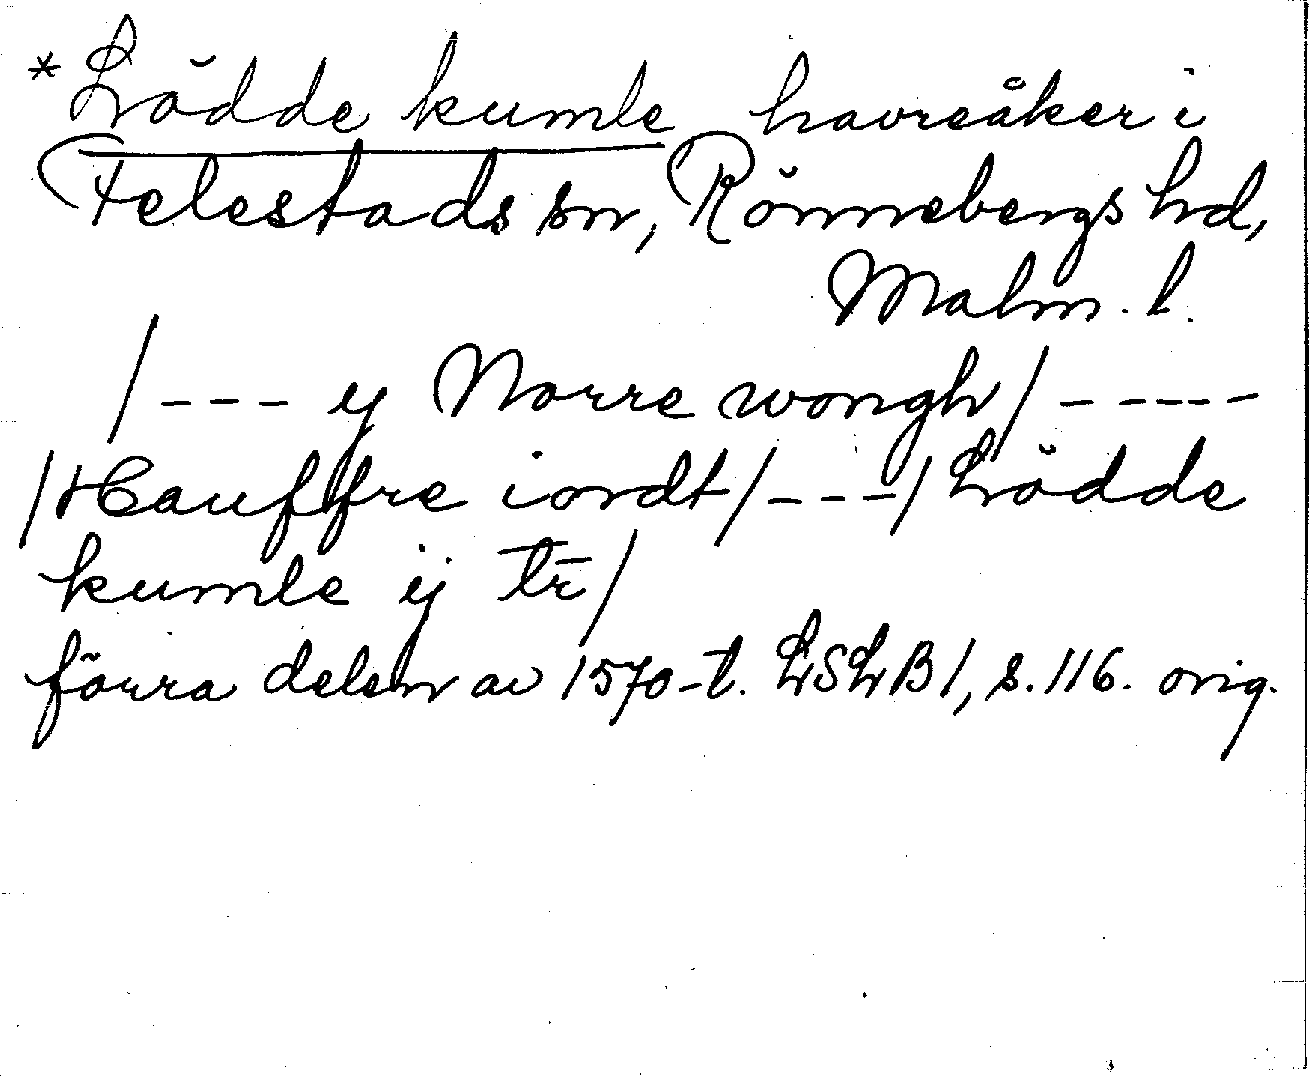 *Lŏdde kumle havreåker i
Felestads sn, Rönnebergs hd,
Malm. l.
/--- ij Norre wongh/-----
/Hauffre iordt/---/Lŏdde
kumle ij tr̄/
förra delen av 1570-t. LSLB1, s. 116. orig.